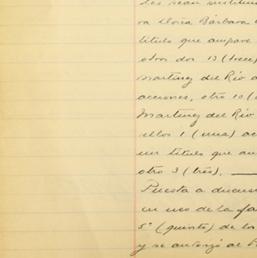 des sean sustitui
va Gloria Bárbara
título que ampare
otros dos 13 (trece)
Martinez del Río a
acciones, otro 10 (d
Martinez del Río
ellos 1 (una) ac
un título que am
otro 3 (tres).
Puesta a discus
en uso de la fa
5ª (quinta) de la
y se autorizó al P